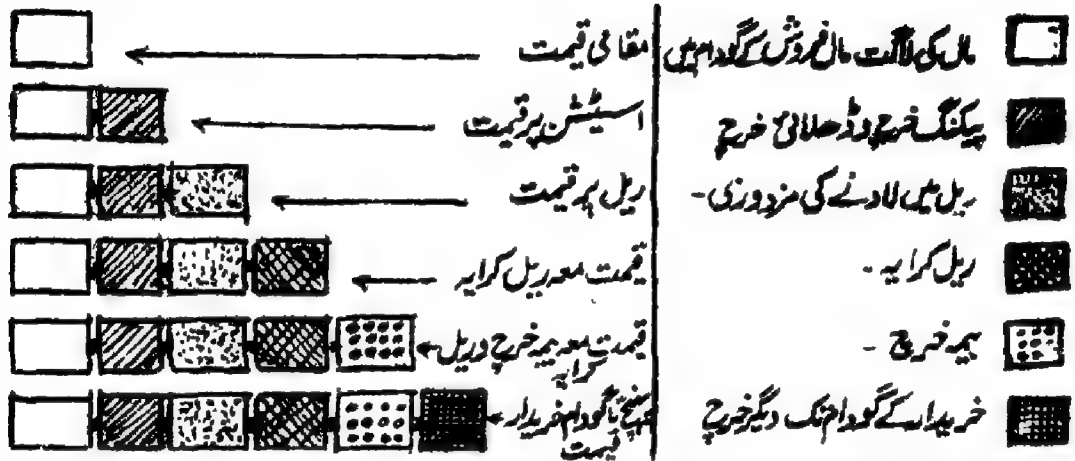 مال کی لاگت مال فروش کے گودام میں
پیکنگ خرچ و ڈھلائی خرچ
ریل میں لادنے کی مزدوری -
ریل کرایہ -
بیمہ خرچ -
خریدار کے گودام تک دیگر خرچ
مقامی قیمت
اسٹیشن پر قیمت
ریل پر قیمت
قیمت معہ ریل کرایہ
قیمت معہ بیمہ خرچ و ریل
کرایہ
پہنچ تا گودام خریدار
قیمت